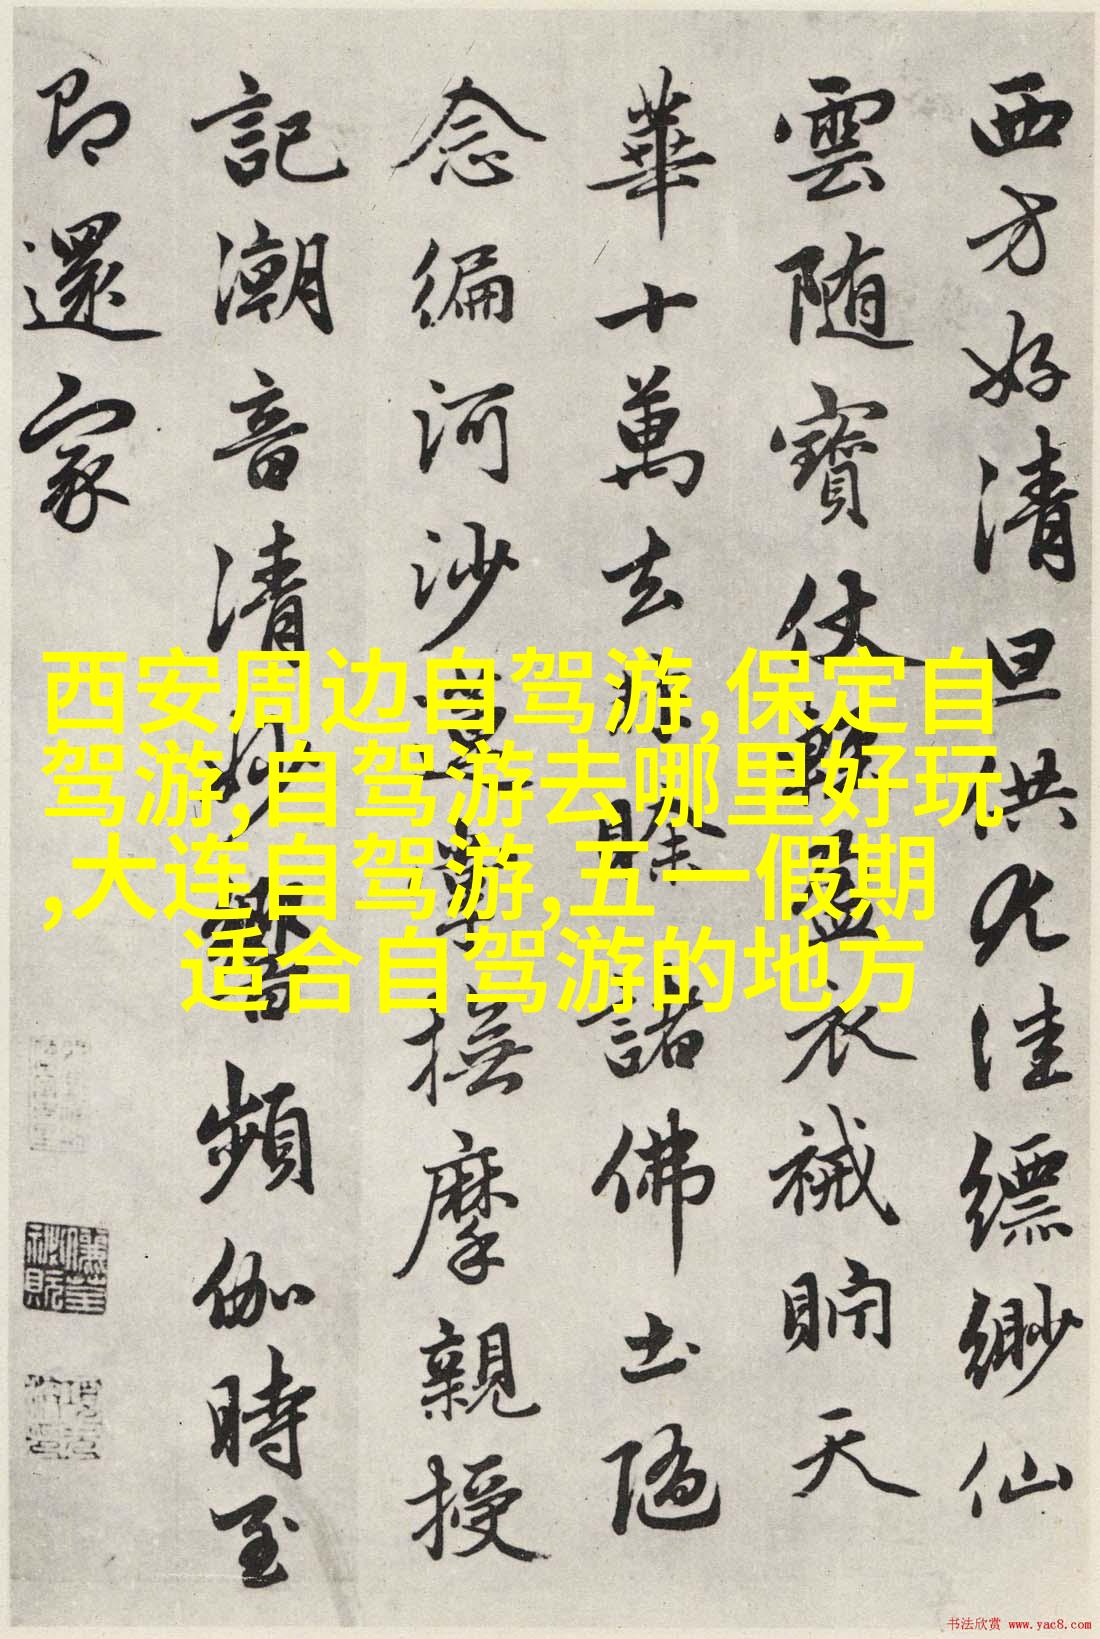 西方好清旦供尤佳縹緲仙
雲随寶仗輕盈衣裓貯天
華十萬去非賒諸佛土隨
念編河沙蓮掌撫摩親授
記潮音清妙響頻伽時至
即還家
西安周边自驾游,保定自
驾游,自驾游去哪里好玩
,大连自驾游,五一假期
适合自驾游的地方
书法欣赏 www.yac8.com